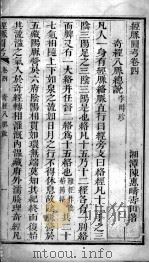 經脈圖考卷四
湘潭陳惠疇壽田著
奇經八脈總說 李時珍
凡人一身有經脈絡脈直行曰經旁支曰絡經凡十二手之三
陰三陽足之三陰三陽是也絡凡十五乃十二經各有一別絡
而脾又有一大絡并任督二絡為十五也
共二十
七氣相隨上下如泉之流如日月之行不得休息故陰脈營於
五臟陽脈營於六腑陰陽相貫如環無端莫知其紀終而復始
其流溢之氣入於奇經轉相灌溉內溫臟腑外濡腠理奇經凡